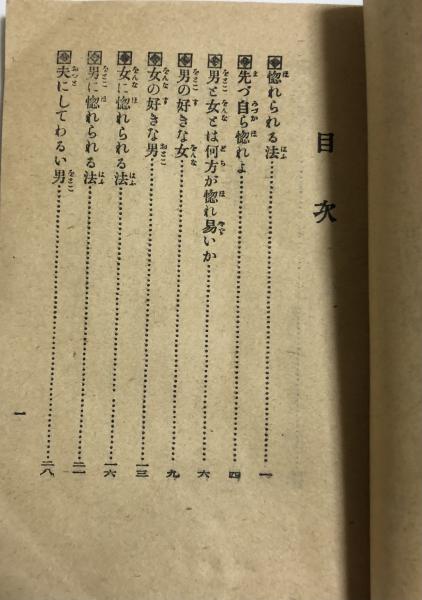 目次
惚れられる法……一
先づ自ら惚れよ……四
男と女とは何方が惚れ易いか……六
男の好きな女……九
女の好きな男……一三
女に惚れられる法……一六
男に惚れられる法……二一
夫にしてわるい男……二八
一